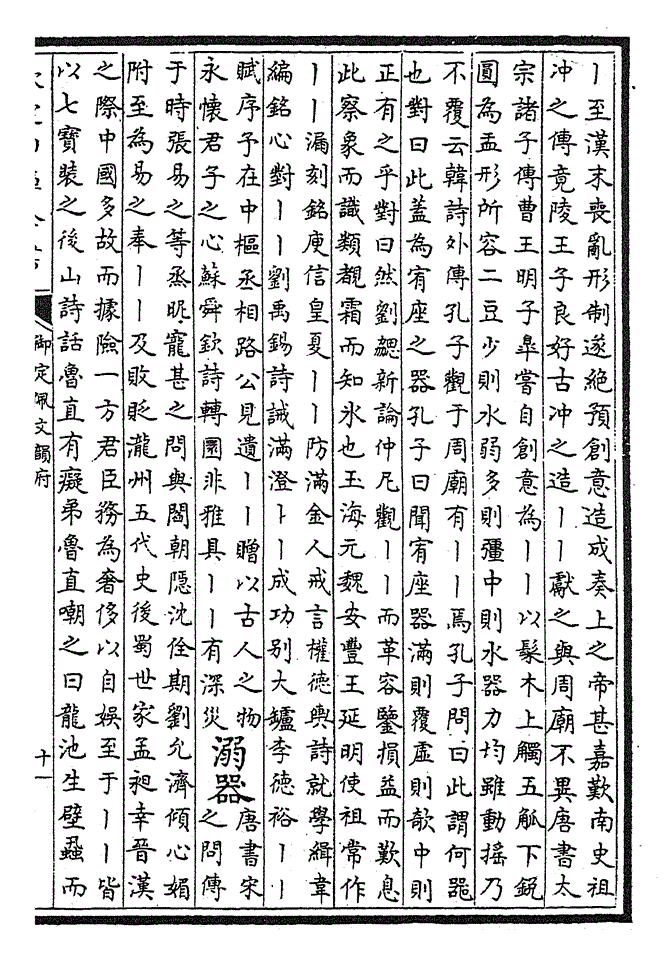 丨至漢末喪亂形制遂絶預創意造成奏上之帝甚嘉歎南史祖
冲之傳竟陵王子良好古冲之造丨丨獻之與周廟不異唐書太
宗諸子傳曹王明子臯嘗自創意為丨丨以髹木上觸五觚下鋭
圓為盂形所容二豆少則水弱多則彊中則水器力均雖動搖乃
不覆云韓詩外傳孔子觀于周廟有丨丨焉孔子問曰此謂何器
也對曰此蓋為宥座之器孔子曰聞宥座器滿則覆虛則欹中則
正有之乎對曰然劉勰新論仲尼觀丨丨而革容鑒損益而歎息
此察象而識類覩霜而知氷也玉海元魏安豐王延明使祖常作
丨丨漏刻銘庾信皇夏丨丨防滿金人戒言權德輿詩就學緝韋
編銘心對丨丨劉禹錫詩誡滿澄丨丨成功别大鑪李德裕丨丨
賦序予在中樞丞相路公見遺丨丨贈以古人之物
永懷君子之心蘇舜欽詩轉圜非雅具丨丨有深災
溺器
唐書宋
之問傳
于時張易之等烝昵寵甚之問與閻朝隱沈佺期劉允濟傾心媚
附至為易之奉丨丨及敗貶瀧州五代史後蜀世家孟昶幸晉漢
之際中國多故而據險一方君臣務為奢侈以自娛至于丨丨皆
以七寶裝之後山詩話魯直有癡弟魯直嘲之曰龍池生壁蝨而
御定佩文韻府
十一